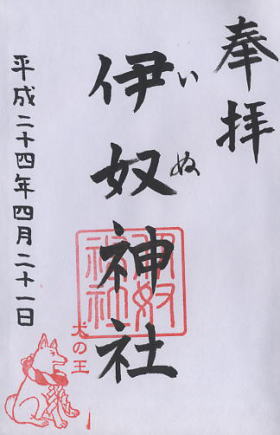 奉拝
いぬ
伊奴神社
伊奴神社
犬の王
平成二十四年四月二十一日